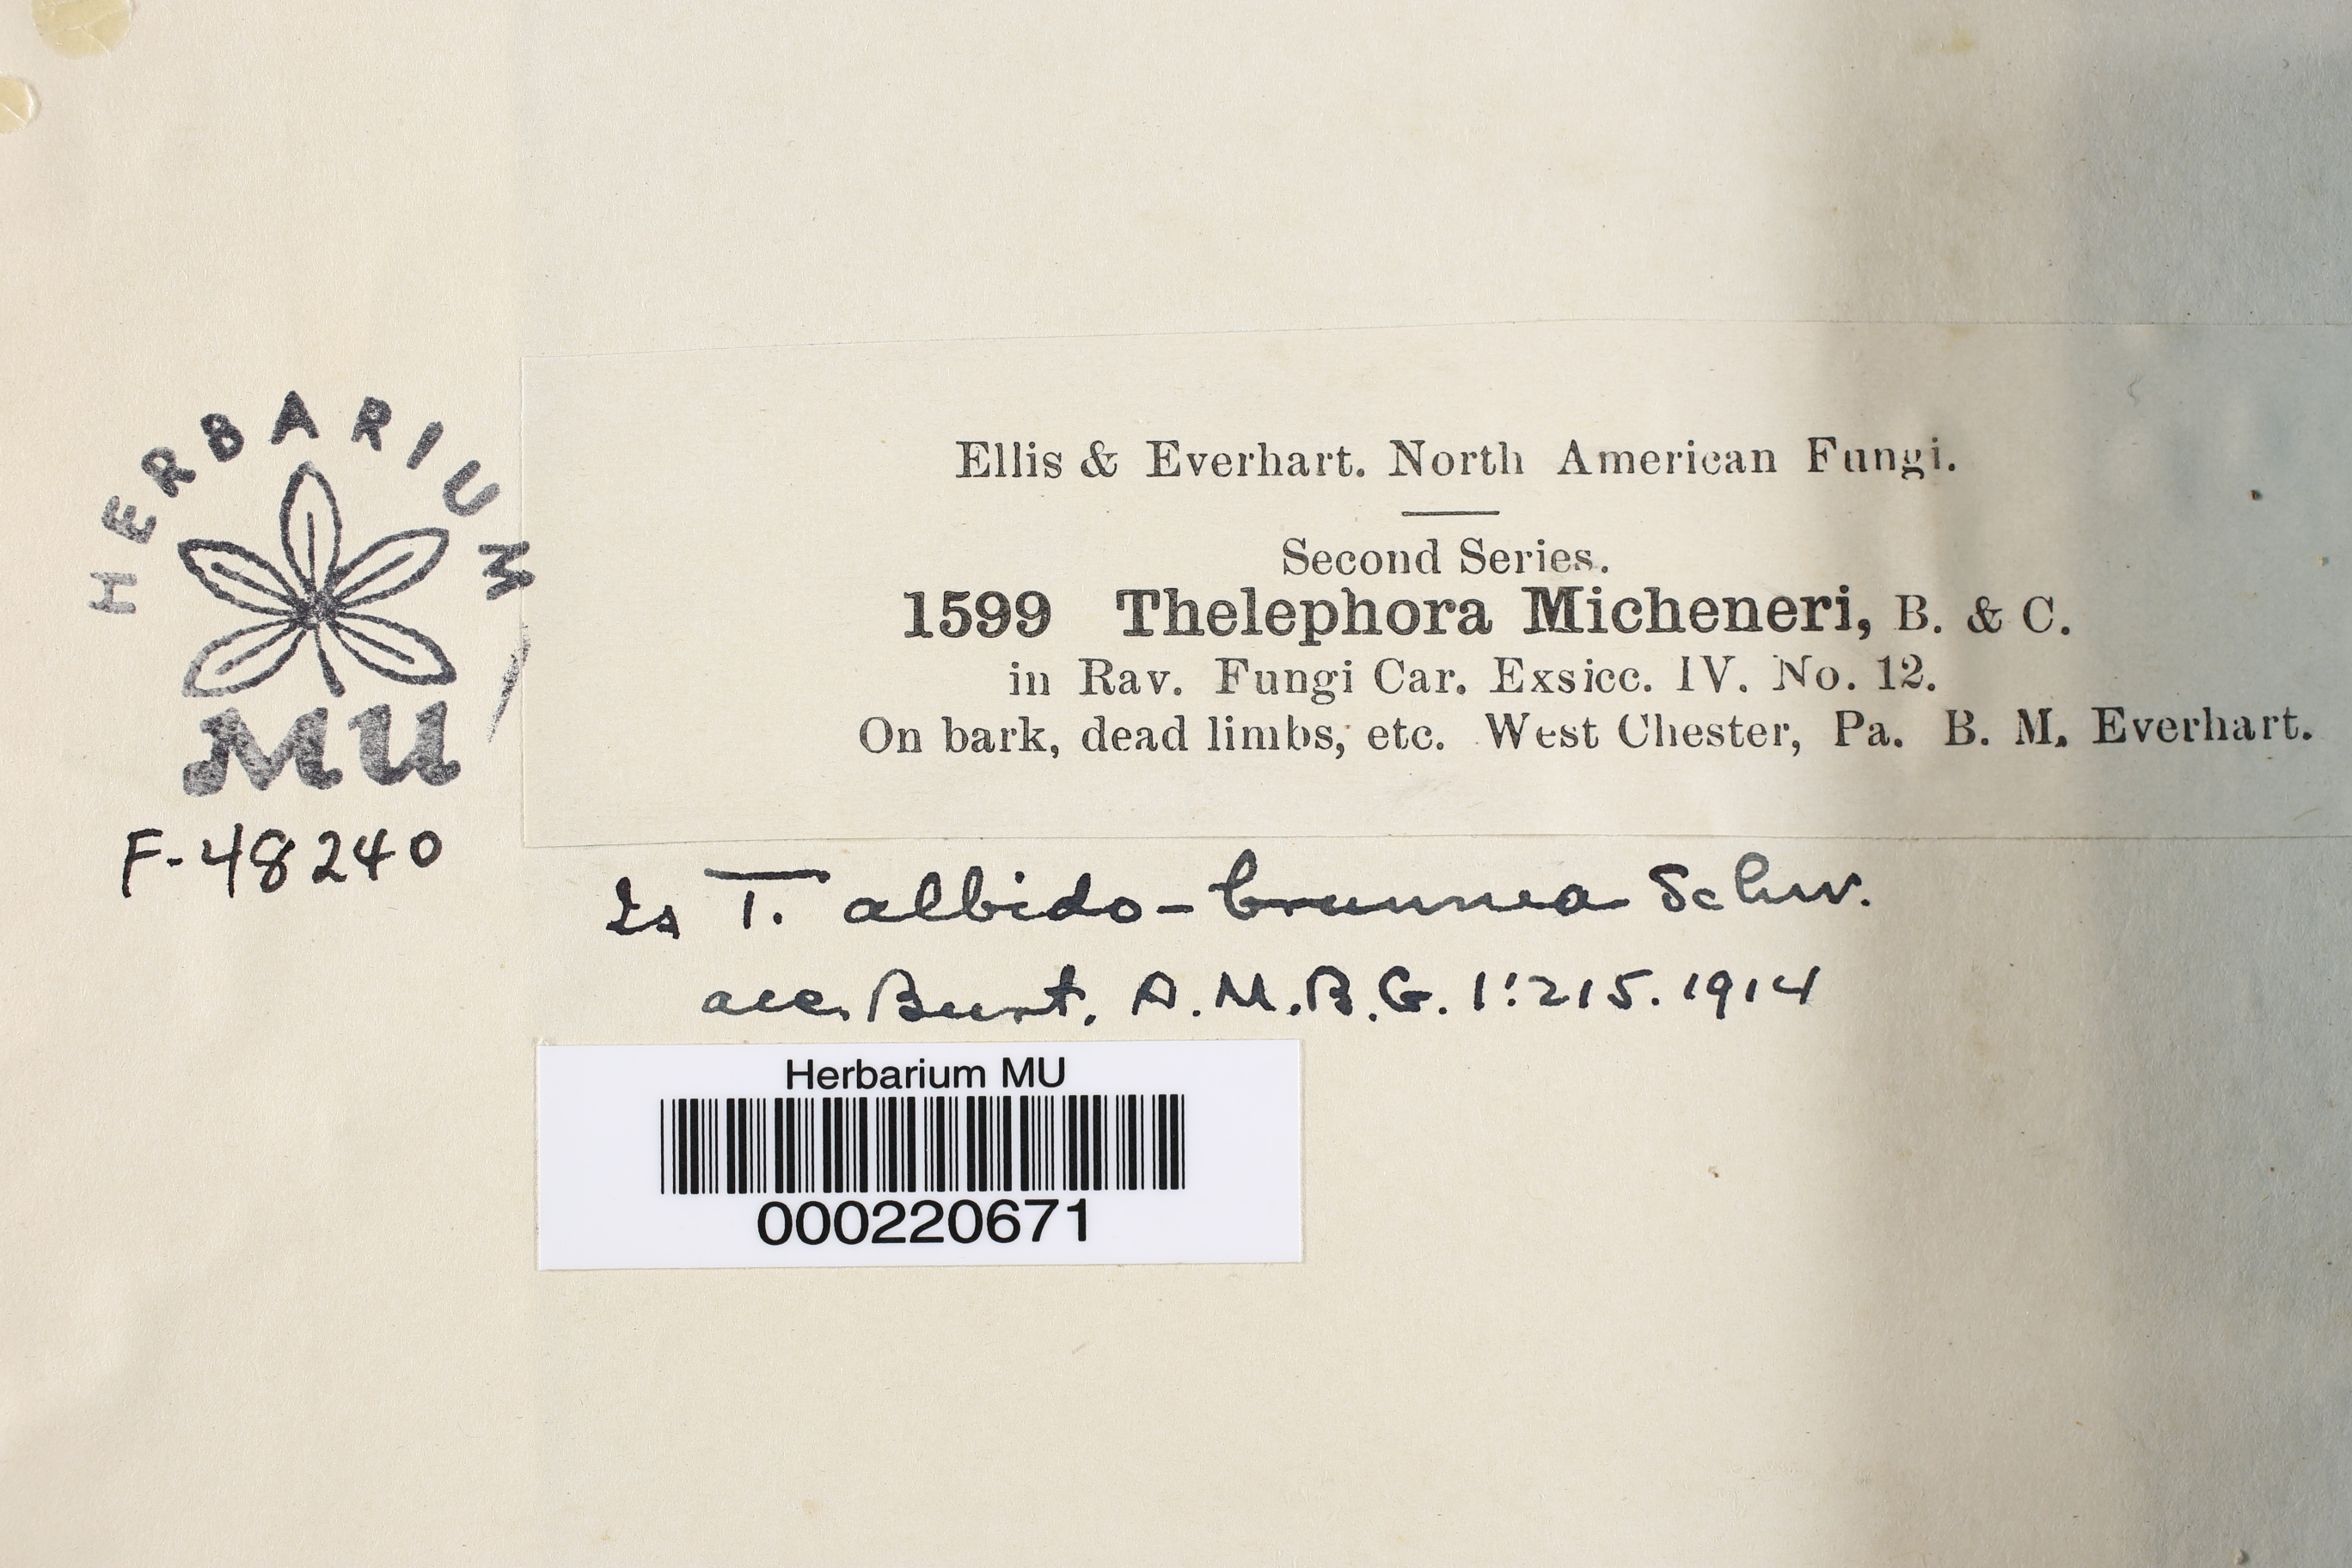 HERBARIUM
MU
F-48240
Ellis & Everhart. North American Fungi.
Second Series.
1599 Thelephora Micheneri, B. & C.
in Rav. Fungi Car. Exsicc. IV. No. 12.
On bark, dead limbs, etc. West Chester, Pa. B. M. Everhart.
Is T. albido-brunnea Schw.
acc. Burt. A.M.B.G. 1:215. 1914
Herbarium MU
000220671